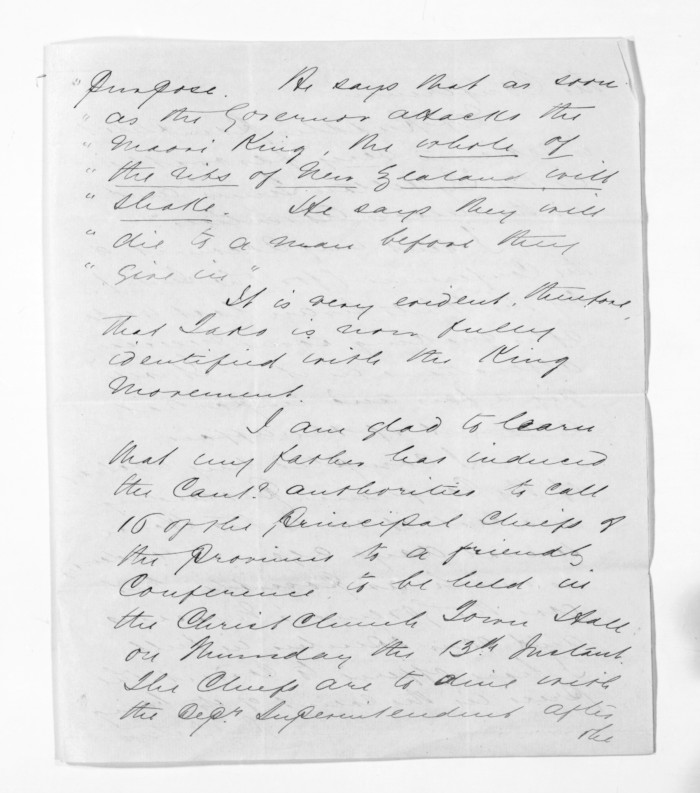 " Purpose. He says that as soon
" as the Governor attacks the
" Maori King, the whole of
" the ribs of New Zealand will
" shake. He says they will
" die to a man before they
" give in"
It is very evident, therefore,
that Tako is now fully
identified with the King
Movement.
I am glad to learn
that my father has induced
the Cant.y authorities to call
16 of the Principal Chiefs of
the Province to a friendly
Conference to be held in
the ChristChurch Town Hall
on Thursday the 13th Instant.
The Chiefs are to dine with
the Dep.y Superintendent after
the